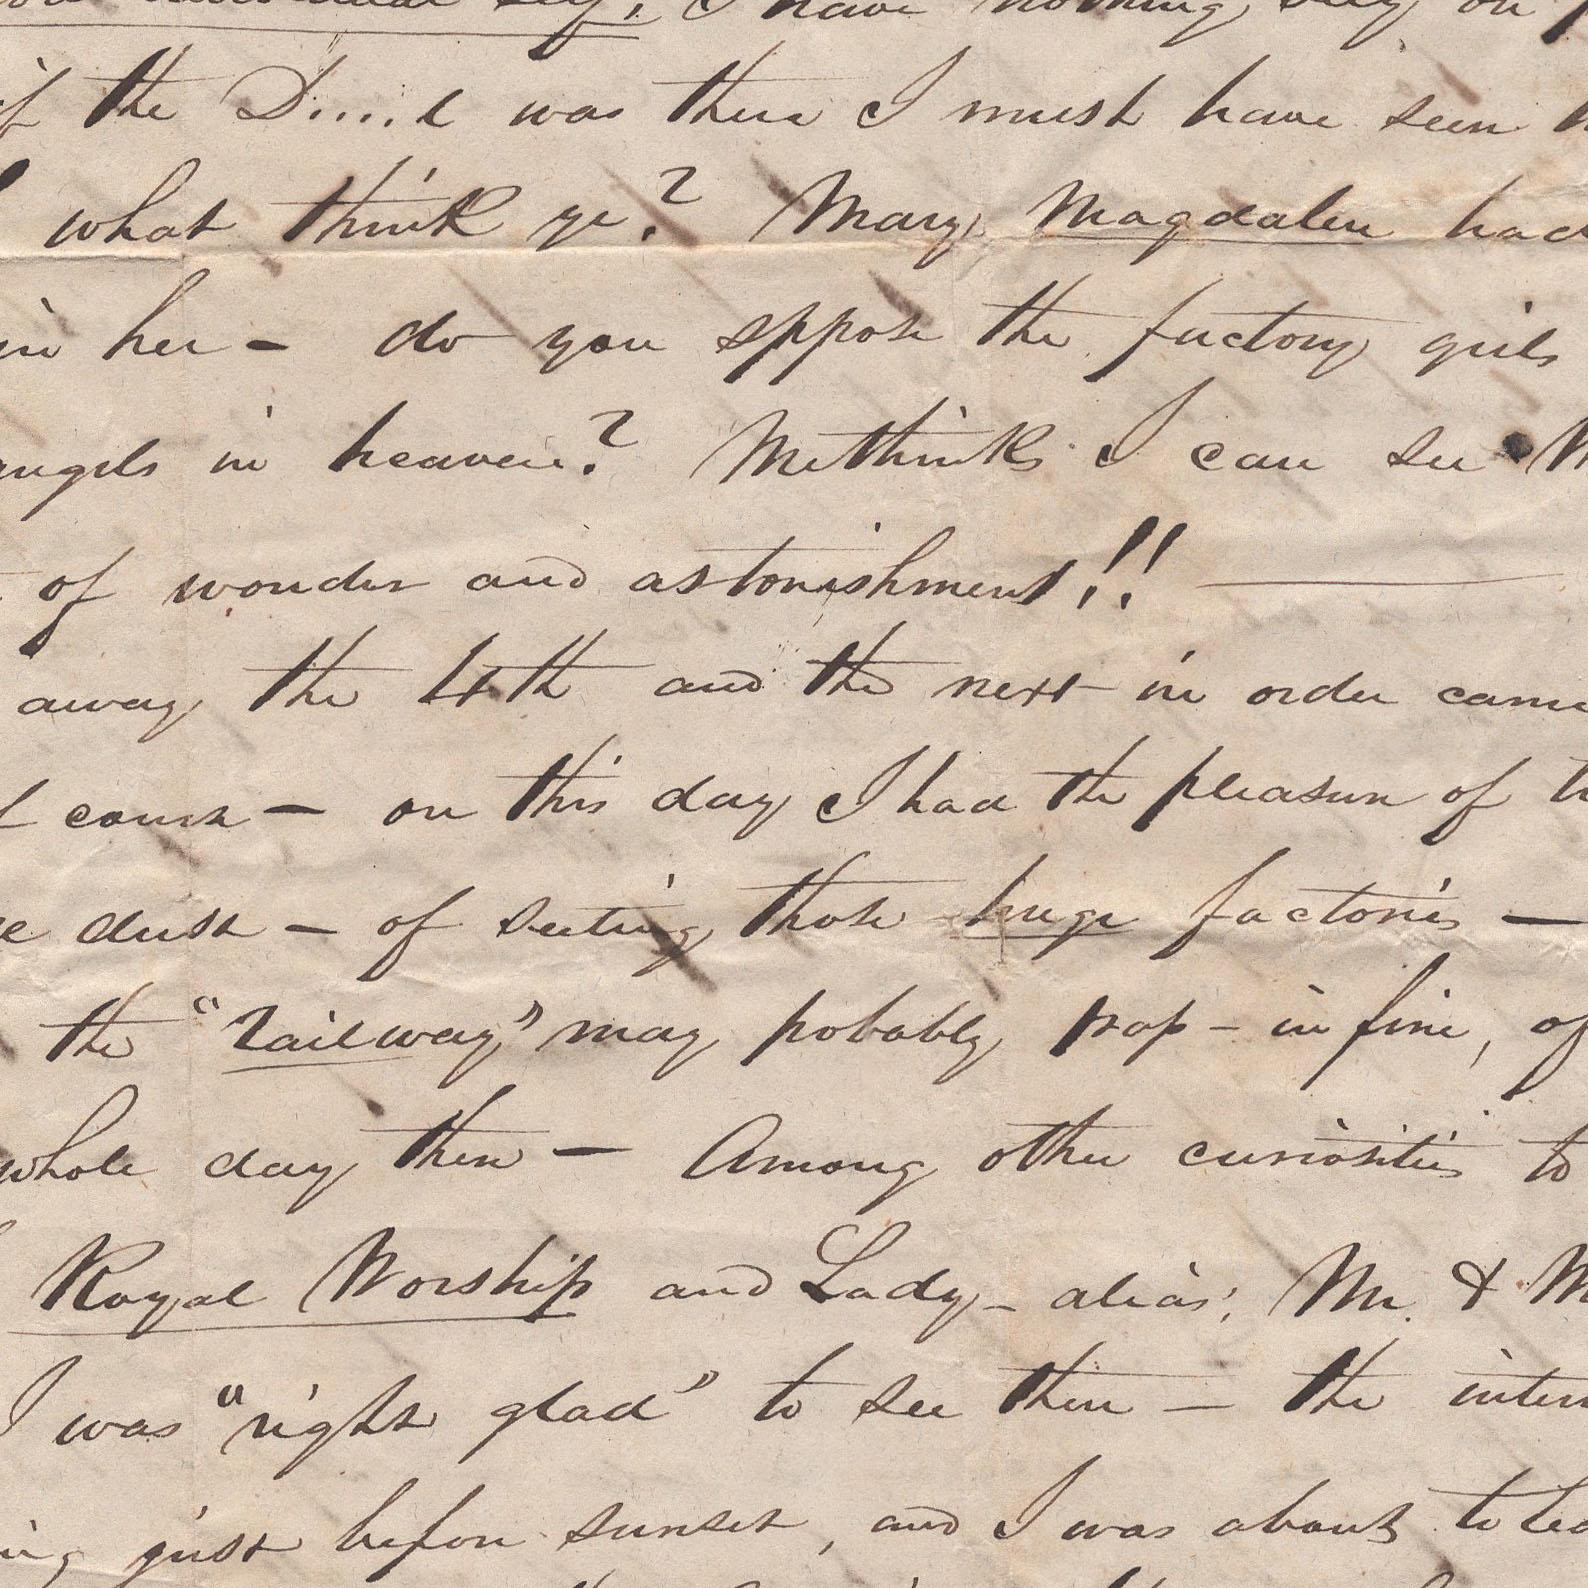 self, I have nothing, say on
if the D.....l was there I must have seen
what think ye? Mary Magdalen had
in her – do you sppose the factory girls
angels in heaven? Methinks I can see
of wonder and astonishment!! —
away the 4th and the next in order came
course – on this day I had the pleasure of
dust – of seeting those huge factories –
the "railway" may pobably pop – in fine, of
whole day then – Among other curiosities to
Royal Worship and Lady – alias; Mr. & M
I was "right glad" to see them – the inter
ing just before sunset, and I was about to lea